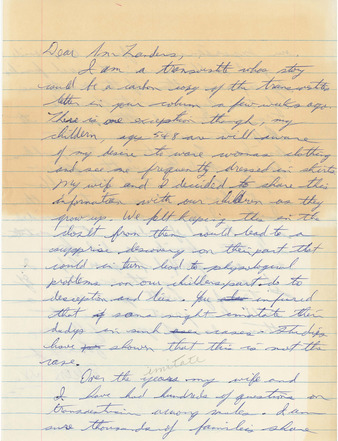 Dear Ann Landers,
I am a transvestite whos story
could be a carbon copy of the transvestite
letter in your column a few weeks ago.
There is one exception though, my
children, age 5&8 are well aware
of my desire to ware womans clothing
and see me frequently dressed in skirts.
My wife and I decided to share this
information with our children as they
grow up. We felt keeping this in the
closit from them would lead to a
supprise descovery on their part that
could in turn lead to phychological
problems on our childrens part do to
desception and lies. You infured
that some might immitate their
dadys in such cases. Studys
have shown that this is not the
case.
immitate
Over the years my wife and
I have had hundreds of questions on
transvestism among males. I am
sure thousands of families share